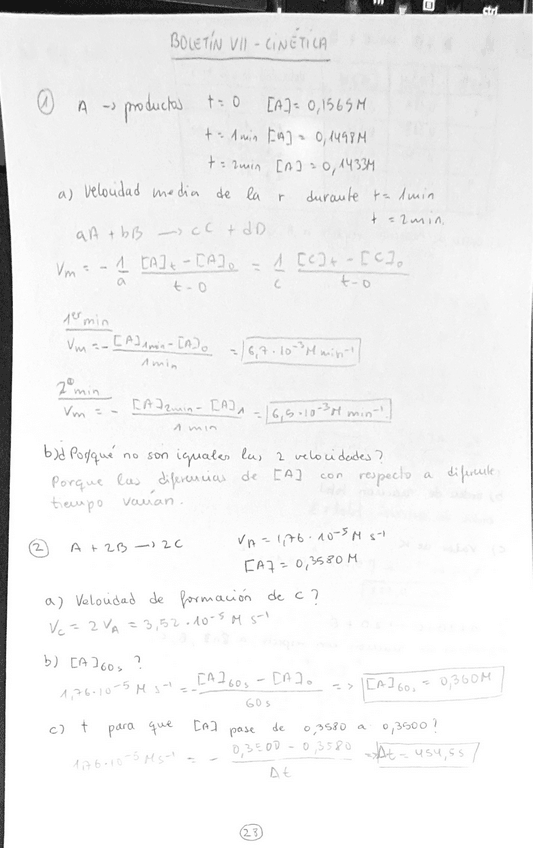 BOLETÍN VII - CINÉTICA
① A → productos t = 0 [A] = 0,1565M
t = 1min [A] = 0,1498M
t = 2min [A] = 0,1433M
a) Velocidad media de la r durante t = 1min
t = 2min.
aA + bB → cC + dD
Vm = - 1/a [A]t - [A]0 / t - 0 = 1/c [C]t - [C]0 / t - 0
1er min
Vm = - [A]1min - [A]0 / 1min = 6,7 · 10⁻³ M min⁻¹
2º min
Vm = - [A]2min - [A]1 / 1 min = 6,5 · 10⁻³ M min⁻¹
b) ¿Porqué no son iguales las 2 velocidades?
Porque las diferencias de [A] con respecto a diferente
tiempo varían.
② A + 2B → 2C VA = 1,76 · 10⁻⁵ M s⁻¹
[A] = 0,3580 M
a) Velocidad de formación de C?
Vc = 2 VA = 3,52 · 10⁻⁵ M s⁻¹
b) [A]60s ?
1,76 · 10⁻⁵ M s⁻¹ = - [A]60s - [A]0 / 60s => [A]60s = 0,360M
c) t para que [A] pase de 0,3580 a 0,3500?
1,76 · 10⁻⁵ M s⁻¹ = - 0,3500 - 0,3580 / Δt => Δt = 454,5s
23